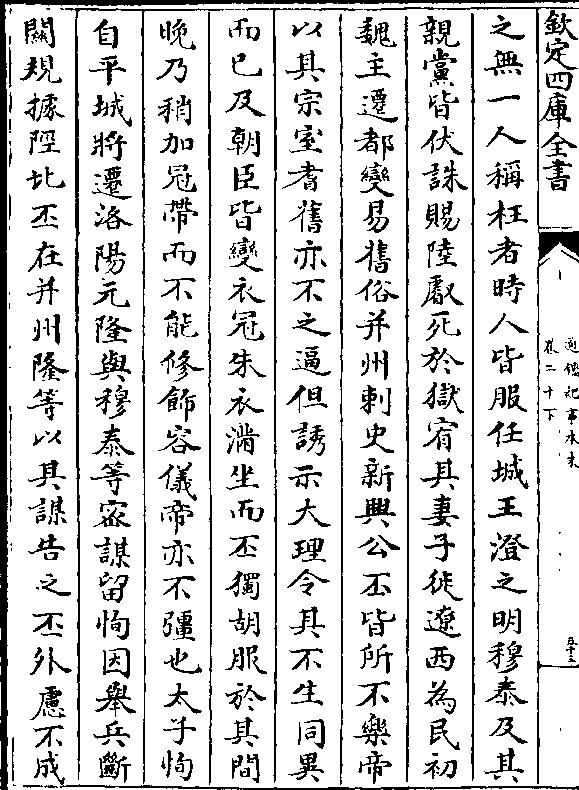 欽定四庫全書
通鑑紀事本末
卷二十下
五十三
之無一人稱枉者時人皆服任城王澄之明穆泰及其
親黨皆伏誅賜陸叡死於獄宥其妻子徙遼西為民初
魏主遷都變易舊俗并州刺史新興公丕皆所不樂帝
以其宗室耆舊亦不之逼但誘示大理令其不生同異
而已及朝臣皆變衣冠朱衣滿坐而丕獨胡服於其間
晚乃稍加冠帶而不能修飾容儀帝亦不彊也太子恂
自平城將遷洛陽元隆與穆泰等宻謀留恂因舉兵斷
關規據陘北丕在并州隆等以其謀告之丕外慮不成